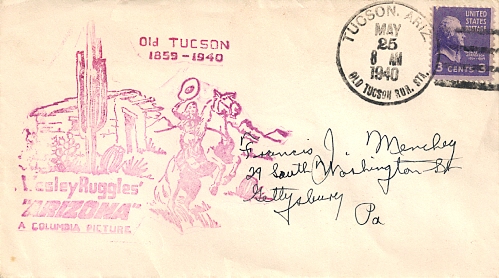 Old TUCSON
1859-1940
TUCSON, ARIZ.
MAY
25
8 AM
1940
OLD TUCSON RUR. STA.
UNITED
STATES
POSTAGE
3 CENTS 3
Francis J. Menchey
29 South Washington St
Gettysburg
Pa
Wesley Ruggles'
"ARIZONA"
A COLUMBIA PICTURE